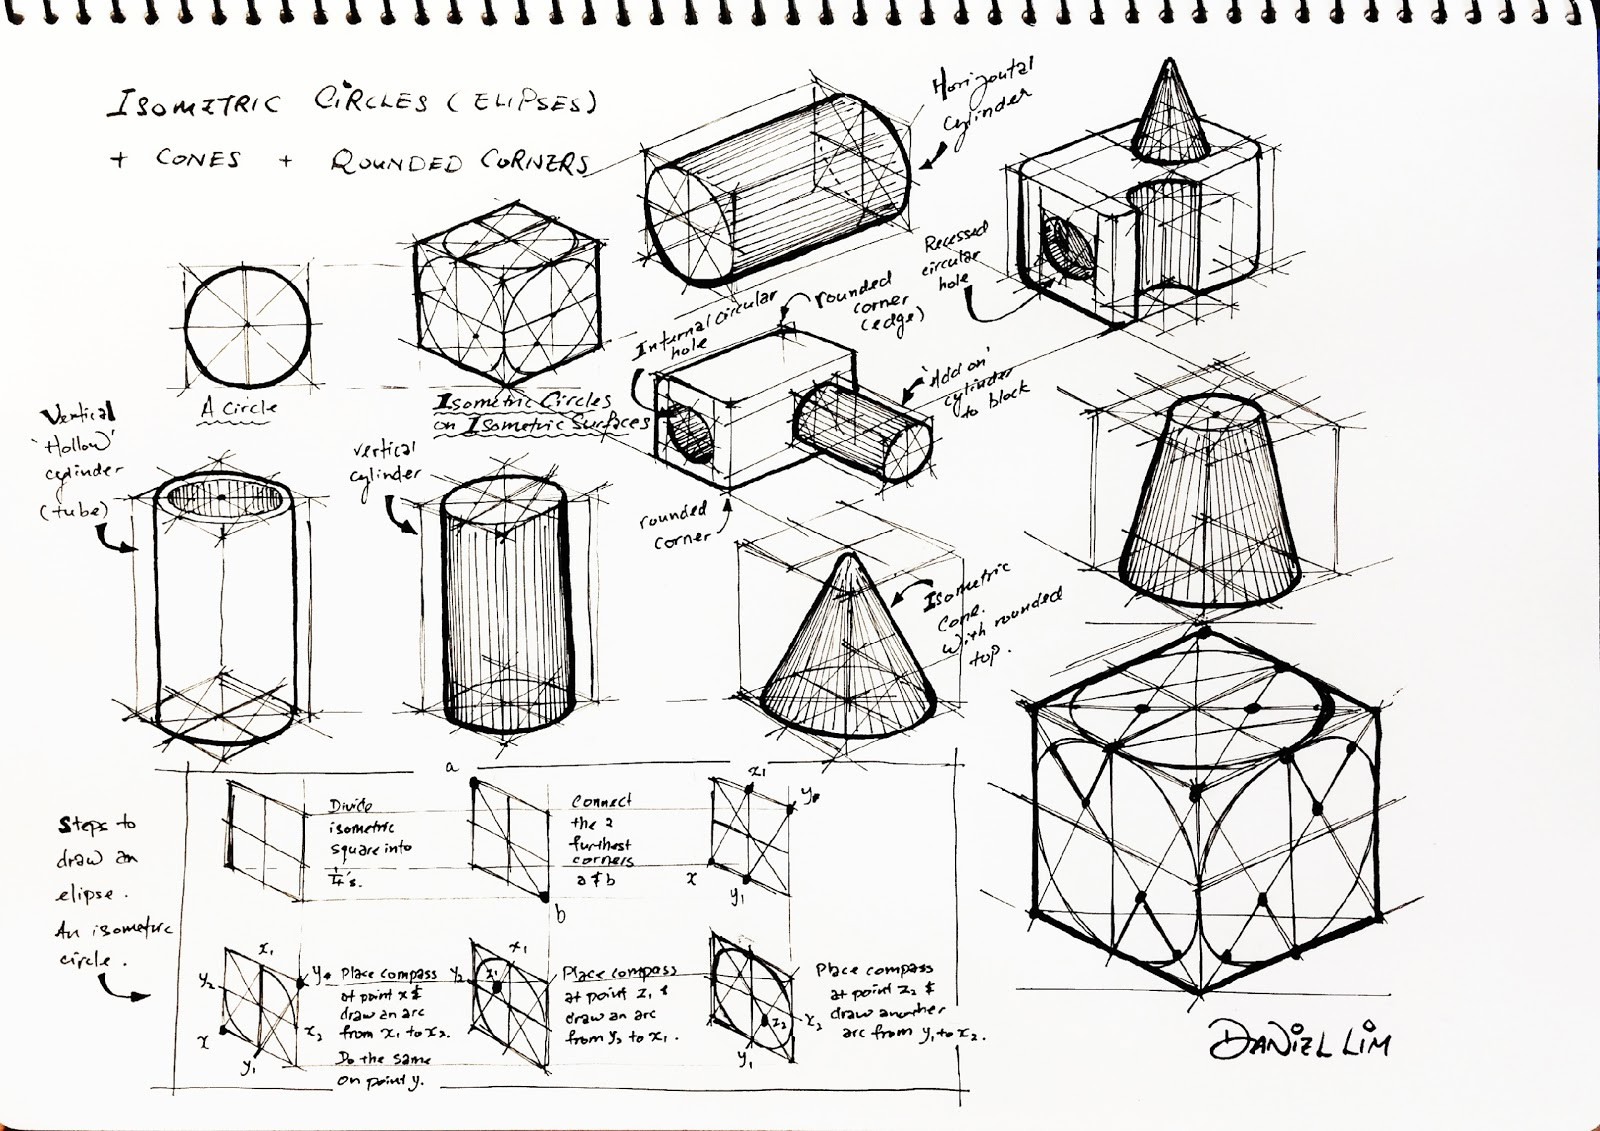 ISOMETRIC CIRCLES (ELIPSES)
+ CONES + ROUNDED CORNERS
Horizontal
cylinder
Recessed
circular
hole
rounded
corner
(edge)
Internal circular
hole
'Add on'
cylinder
to block
A circle
Isometric Circles
on Isometric Surfaces
Vertical
'Hollow'
cylinder
(tube)
vertical
cylinder
rounded
corner
Isometric
cone.
With rounded
top.
Steps to
draw an
elipse.
An isometric
circle.
Divide
isometric
square into
1/4's.
a
b
Connect
the 2
furthest
corners
a & b
x1
y
x
y1
x1
y2
y
x
x2
y1
Place compass
at point x &
draw an arc
from x1 to x2.
Do the same
on point y.
x1
y2
z1
Place compass
at point z1 &
draw an arc
from y2 to x1.
z2
x2
y1
Place compass
at point z2 &
draw another
arc from y1 to x2.
DANIEL LIM